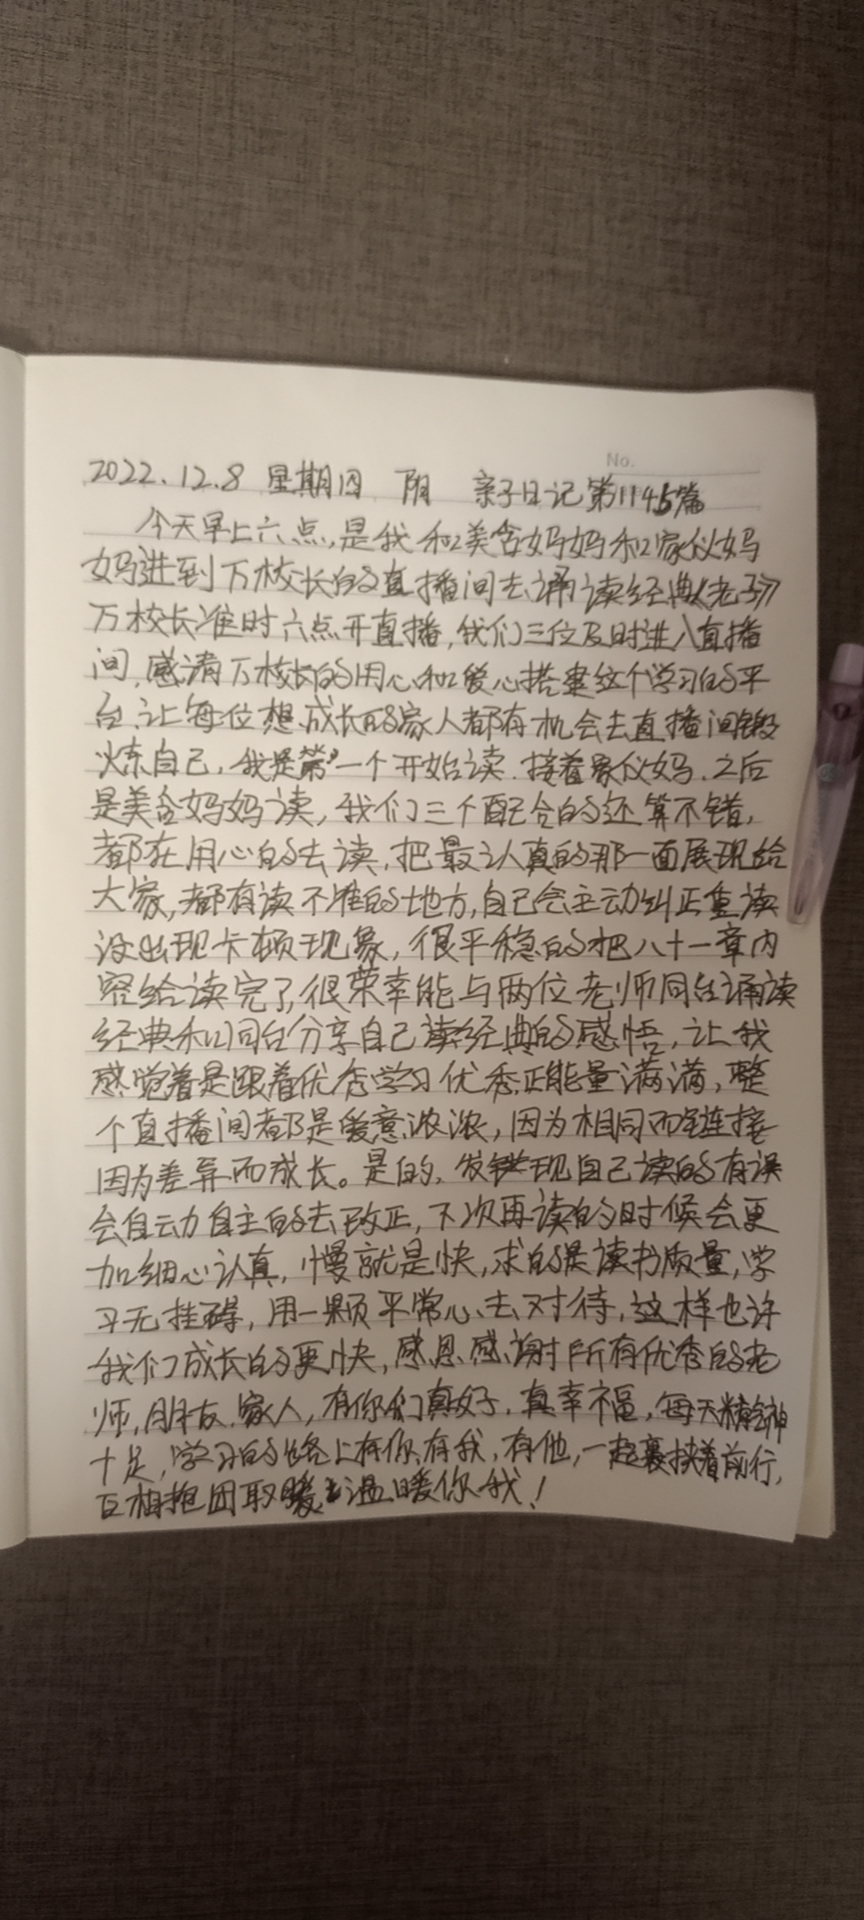 No.
2022.12.8 星期四 阴 亲子日记第1145篇
今天早上六点，是我和美含妈妈和家仪妈
妈进到万校长的直播间去诵读经典《老子》
万校长准时六点开直播，我们三位及时进入直播
间，感谢万校长的用心和爱心搭建这个学习的平
台，让每位想成长的家人都有机会去直播间锻
炼自己，我是第一个开始读.接着家仪妈.之后
是美含妈妈读，我们三个配合的还算不错，
都在用心的去读，把最认真的那一面展现给
大家，都有读不准的地方，自己会主动纠正重读
没出现卡顿现象，很平稳的把八十一章内
容给读完了，很荣幸能与两位老师同台诵读
经典和同台分享自己读经典的感悟，让我
感觉着是跟着优秀学习优秀，正能量满满，整
个直播间都是爱意浓浓，因为相同而链接
因为差异而成长。是的，发现自己读的有误
会自动自主的去改正，下次再读的时候会更
加细心认真，慢就是快，求的是读书质量，学
习无挂碍，用一颗平常心去对待，这样也许
我们成长的更快，感恩感谢所有优秀的老
师，朋友.家人，有你们真好，真幸福，每天精神
十足，学习的路上有你，有我，有他，一起裹挟着前行，
互相抱团取暖，温暖你我！